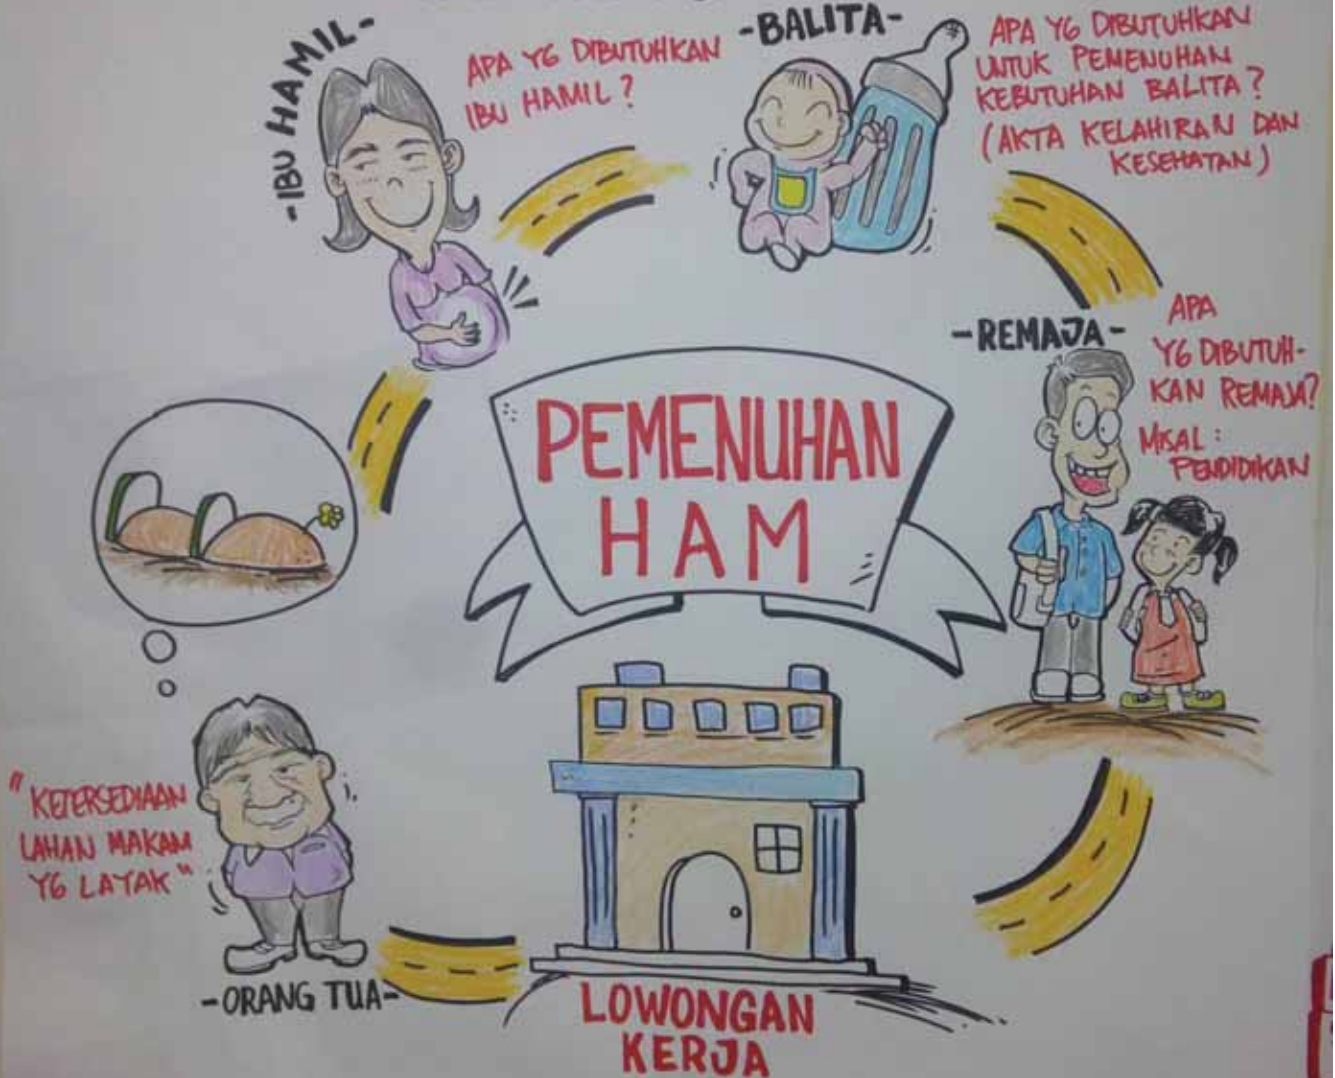 -IBU HAMIL-
APA YG DIBUTUHKAN
IBU HAMIL?
-BALITA-
APA YG DIBUTUHKAN
UNTUK PEMENUHAN
KEBUTUHAN BALITA?
(AKTA KELAHIRAN DAN
KESEHATAN)
-REMAJA-
APA
YG DIBUTUH-
KAN REMAJA?
MISAL:
PENDIDIKAN
PEMENUHAN
HAM
"KETERSEDIAAN
LAHAN MAKAM
YG LAYAK"
-ORANG TUA-
LOWONGAN
KERJA